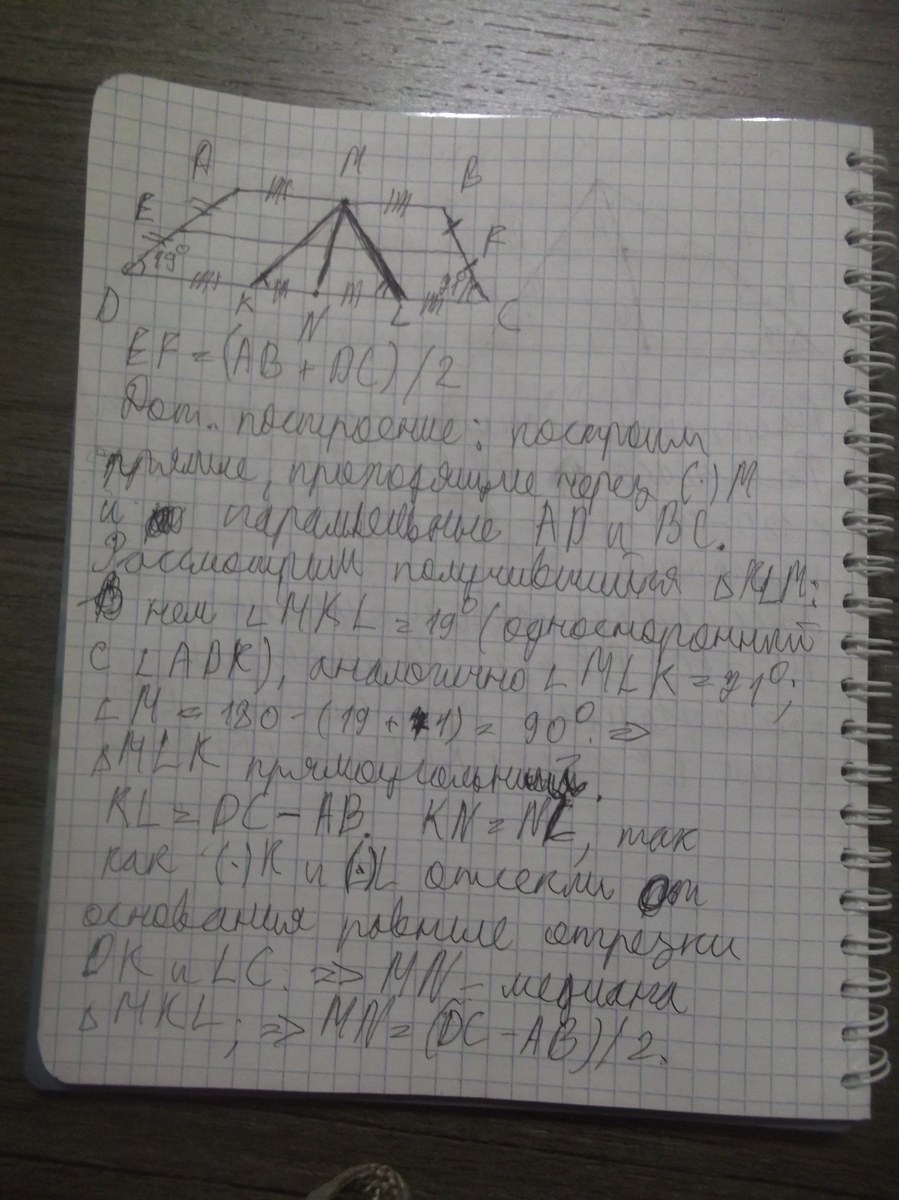 A M B
E F
19° 71°
D K N L C
EF = (AB + DC) / 2
Доп. построение: построим
прямые, проходящие через (·) M
и параллельные AD и BC.
Рассмотрим получившийся △KLM:
В нем ∠MKL = 19° (односторонний
с ∠ADK), аналогично ∠MLK = 71°;
∠M = 180 - (19 + 71) = 90° ⇒
△MLK прямоугольный.
KL = DC - AB. KN = NL, так
как (·)K и (·)L отсекли от
основания равные отрезки
DK и LC. ⇒ MN - медиана
△MKL; ⇒ MN = (DC - AB) / 2.